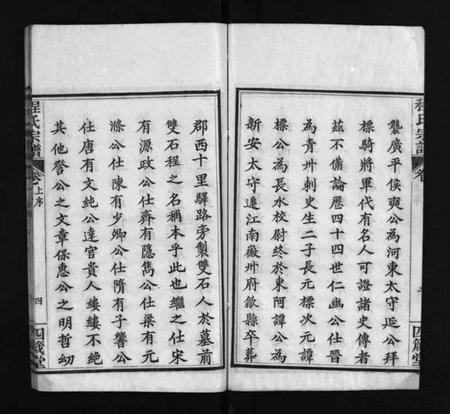 襲廣平侯爽公為河東太守延公拜
標騎將軍代有名人可證諸史傳者
茲不備論歷四十四世仁幽公仕晋
為青州刺史生二子長元標次元譚
標公為長水校尉終於東阿譚公為
新安太守遷江南徽州府歙縣卒葬
程氏宗譜
四箴堂
郡西十里驛路旁製雙石人於墓前
雙石程之名稱本乎此也繼之仕宋
有源政公仕齊有隱雋公仕梁有元
滌公仕陳有少卿公仕隋有子響公
仕唐有文純公達官貴人縷縷不絶
其他譽公之文章保惠公之明哲幼
程氏宗譜
卷上序
四
四箴堂